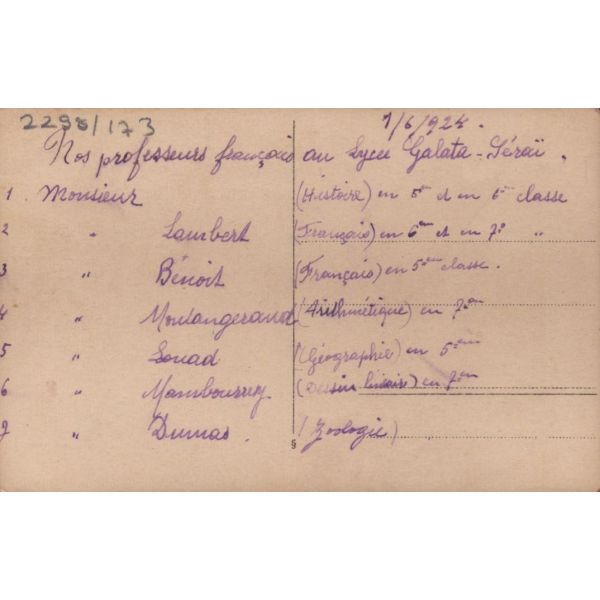 2298/173
1/6/924.
Nos professeurs français au Lycée Galata-Séraï.
1 Monsieur (Histoire) en 5em et en 6em classe
2 " Lambert (Français) en 6em et en 7e "
3 " Bénoit (Français) en 5em classe.
4 " Moulangeraud (Arithmétique) en 7em
5 " Souad (Géographie) en 5em
6 " (Dessin linéaire) en 7em
7 " Dumas. (Zoologie)
§